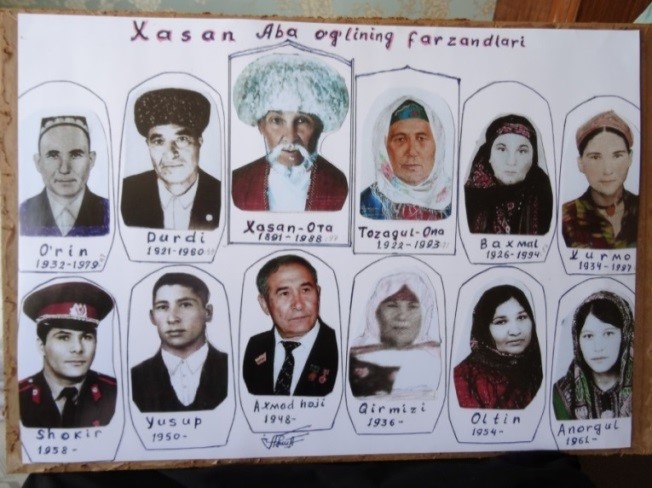 Xasan Aba og'lining farzandlari
O'rin
1932-1979
Durdi
1921-1980
Xasan-Ota
1891-1988
Tozagul-Ona
1922-1993
Baxmal
1926-1994
Xurmo
1934-1997
Shokir
1958-
Yusup
1950-
Axmad hoji
1948-
Qirmizi
1936-
Oltin
1954-
Anorgul
1961-